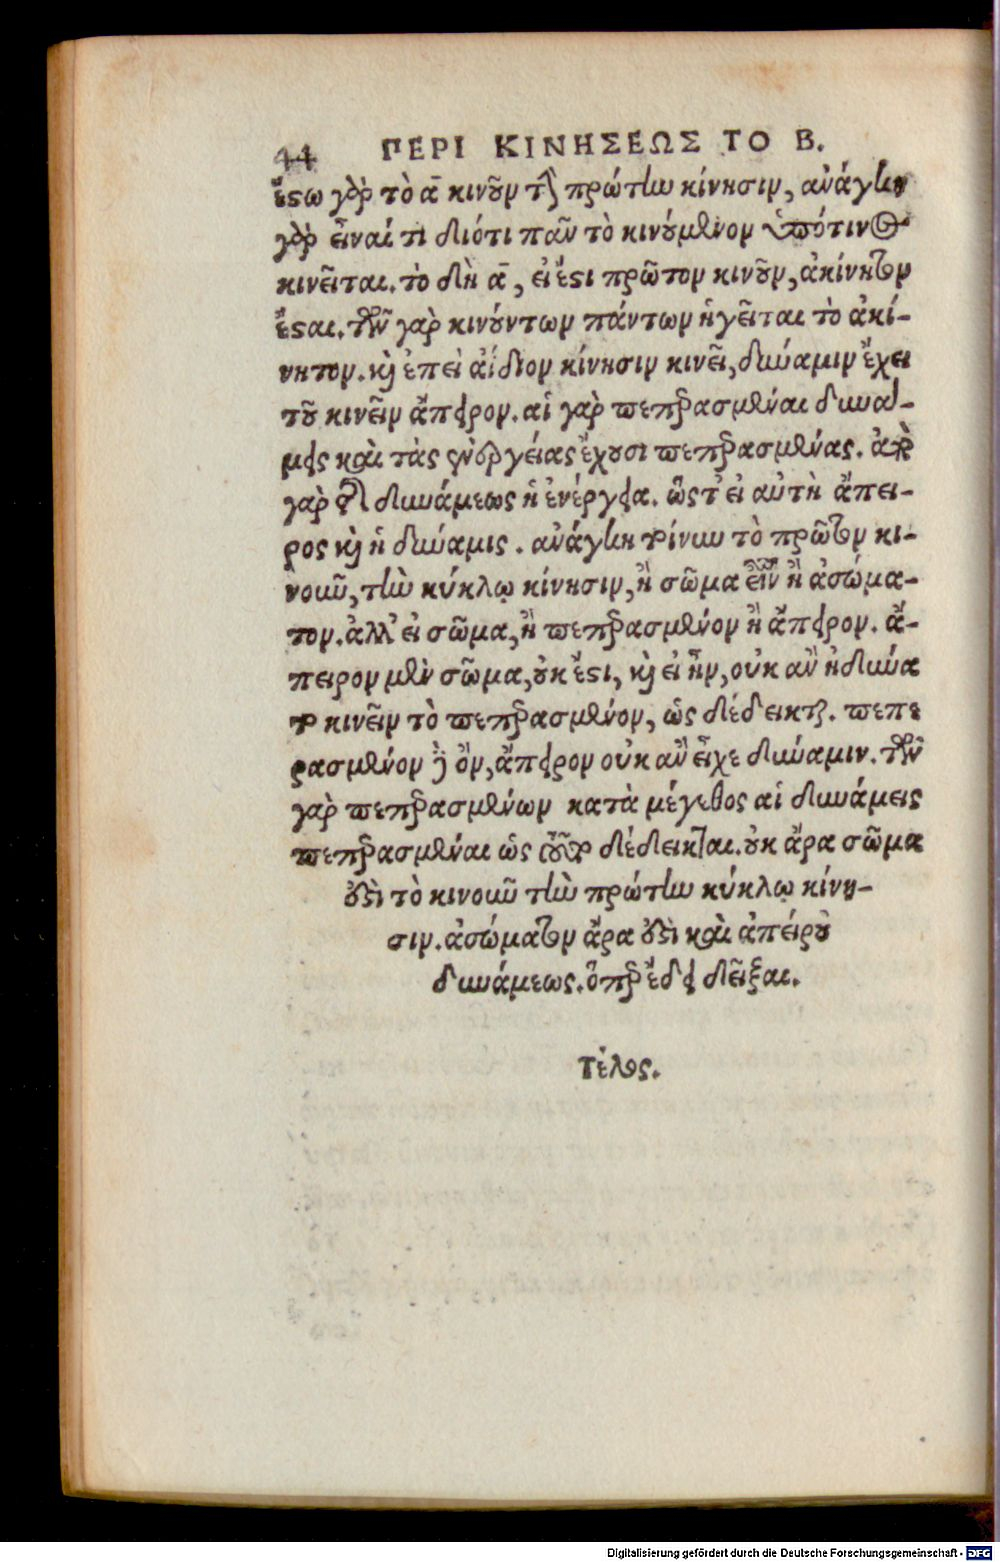 44 ΠΕΡΙ ΚΙΝΗΣΕΩΣ ΤΟ Β.
ἔστω γὰρ τὸ α̅ κινοῦν τὴν πρώτην κίνησιν, ἀνάγκη
γὰρ εἶναί τι διότι πᾶν τὸ κινούμενον ὑπότινος
κινεῖται. τὸ δὴ α̅, εἰ ἔστι πρῶτον κινοῦν, ἀκίνητον
ἔσται. τῶν γὰρ κινούντων πάντων ἡγεῖται τὸ ἀκί-
νητον. καὶ ἐπεὶ ἀΐδιον κίνησιν κινεῖ, δύναμιν ἔχει
τοῦ κινεῖν ἄπειρον. αἱ γὰρ πεπερασμέναι δυνά-
μεις καὶ τὰς ἐνεργείας ἔχουσι πεπερασμένας. ἀπὸ
γὰρ τῆς δυνάμεως ἡ ἐνέργεια. ὥστ' εἰ αὐτὴ ἄπει-
ρος καὶ ἡ δύναμις. ἀνάγκη τοίνυν τὸ πρῶτον κι-
νοῦν, τὴν κύκλῳ κίνησιν, ἢ σῶμα εἶναι ἢ ἀσώμα-
τον. ἀλλ' εἰ σῶμα, ἢ πεπερασμένον ἢ ἄπειρον. ἄ-
πειρον μὲν σῶμα, οὐκ ἔστι, καὶ εἰ ἦν, οὐκ ἂν ἠδύνα
το κινεῖν τὸ πεπερασμένον, ὡς δέδεικται. πεπε
ρασμένον δὲ ὂν, ἄπειρον οὐκ ἂν εἶχε δύναμιν. τῶν
γὰρ πεπερασμένων κατὰ μέγεθος αἱ δυνάμεις
πεπερασμέναι ὡς τοῦτο δέδεικται. οὐκ ἄρα σῶμα
ἐστὶ τὸ κινοῦν τὴν πρώτην κύκλῳ κίνη-
σιν. ἀσώματον ἄρα ἐστὶ καὶ ἀπείρου
δυνάμεως. ὅπερ ἔδει δεῖξαι.
Τέλος.
Digitalisierung gefördert durch die Deutsche Forschungsgemeinschaft - DFG